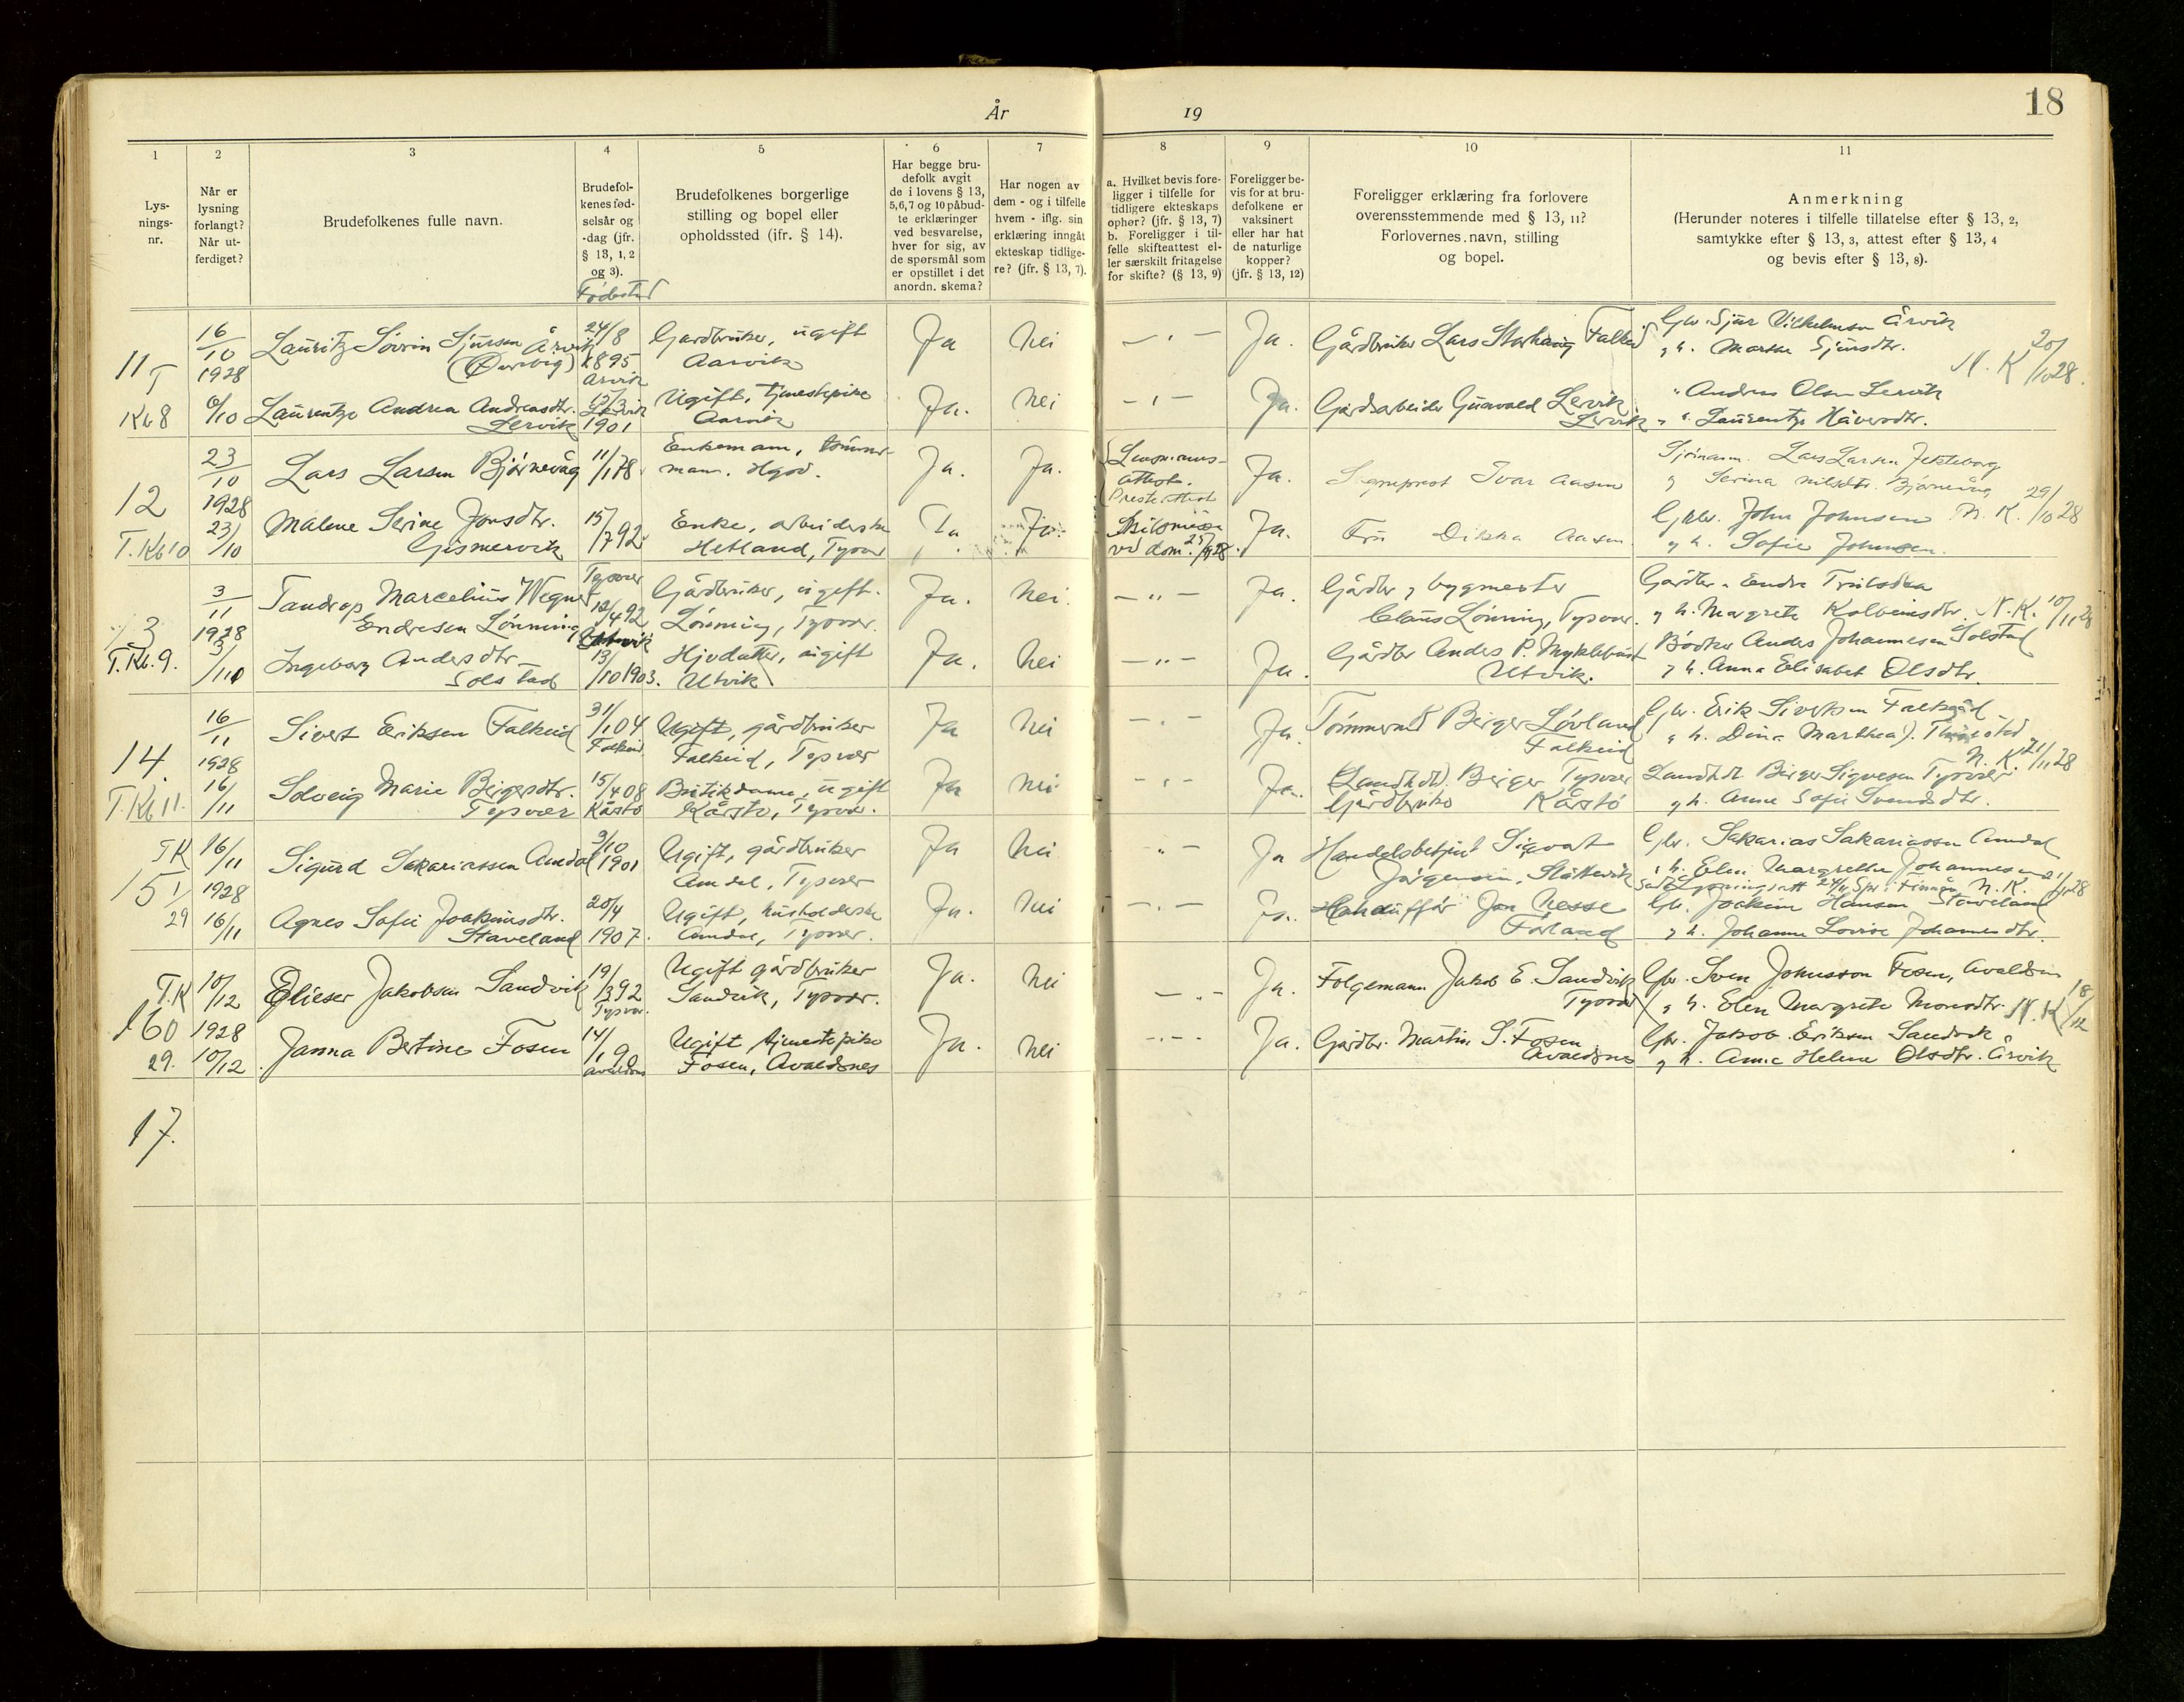 År 19
18
1
Lys-
nings-
nr.
2
Når er
lysning
forlangt?
Når ut-
ferdiget?
3
Brudefolkenes fulle navn.
4
Brudefol-
kenes fød-
selsår og
-dag (jfr.
§ 13, 1, 2
og 3).
Fødested
5
Brudefolkenes borgerlige
stilling og bopel eller
opholdssted (ifr. § 14).
6
Har begge bru-
defolk avgit
de i lovens § 13,
5,6,7 og 10 påbud-
te erklæringer
ved besvarelse,
hver for sig, av
de spørsmål som
er opstillet i det
anordn. skema?
7
Har nogen av
dem - og i tilfelle
hvem - iflg. sin
erklæring inngåt
ekteskap tidlige-
re? (jfr. § 13, 7).
8
a. Hvilket bevis fore-
ligger i tilfelle for
tidligere ekteskaps
ophør? (jfr. § 13, 7)
b. Foreligger i til-
felle skifteattest el-
ler særskilt fritagelse
for skifte? (§ 13, 9)
9
Foreligger be-
vis for at bru-
defolkene er
vaksinert
eller har hat
de naturlige
kopper?
(jfr. § 13, 12)
10
Foreligger erklæring fra forlovere
overensstemmende med § 13, 11?
Forlovernes navn, stilling
og bopel.
11
Anmerkning
(Herunder noteres i tilfelle tillatelse efter § 13, 2,
samtykke efter § 13, 3, attest efter § 13, 4
og bevis efter § 13, 8).
11 T
Kb 8
16/10
1928
Lauritz Sovrin Sjursen Årvik
24/8
1895
Arvik
Gardbruker, ugift
Aarvik
Ja
Nei
— " —
Ja.
Gårdbruker Lars Storhaug Falkeid
Gbr. Sjur Vilhelmsen Årvik
og h. Marta Sjursdtr.
N. K 20/10 28.
Laurentze Andrea Andreasdtr.
Lervik
1901
Ugift, tjenestepike
Aarvik
Ja.
Nei
— " —
Ja.
Gårdsarbeider Gunvald Lervik
Lervik
" Andreas Olsen Lervik
" " Laurentze Håversdtr.
12
T. Kb 10
23/10
1928
Lars Larsen Bjørnevåg
11/1 78
Enkemann, tømmer-
mann.
Ja.
Ja.
Lensmanns-
attest.
Presteattest
Ja.
Sogneprest Ivar Aasen
Sjømann. Lars Larsen
og Serina Nilsdtr. Bjørnevåg
N. K. 29/10 28
23/10
Malene Serine Jonsdtr.
Gismervik
15/7 92
Enke, arbeiderske
Hetland, Tysvær
Ja.
Ja.
Skilsmisse
ved dom.
Ja.
Fru Dikka Aasen
Gbr. John Johnsen
og h. Sofie Johnsen.
13
T. Kb. 9.
3/11
1928
Tandrop Marcelius Wegner
Endresen Lønning
Tysvær
12/4 92
Gårdbruker, ugift.
Lønning, Tysvær.
Ja.
Nei.
— " —
Ja.
Gårdbr. og bygmester
Claus Lønning, Tysvær.
Gårdbr. Endre
og h. Margrete Kolbensdtr. N. K. 10/11 28
Ingeborg Andersdtr.
Solstad
13/10 1903.
Hjvdatter, ugift
Utvik
Ja.
Nei
— " —
Ja.
Gårdbr Anders P. Myklebust
Utvik.
Bødker Anders Johannesen Solstad
og h. Anna Elisabet Olsdtr.
14
T. Kb 11.
16/11
1928
Sivert Eriksen Falkeid
31/1 04
Falkeid
Ugift, gårdbruker
Falkeid, Tysvær
Ja
Nei
— " —
Ja.
Tømmerm. Birger Løvland
Falkeid
Gbr. Erik Sivertsen Falkeid
og h. Dina Marthea
N. K. 21/11 28
16/11
Solveig Marie Birgersdtr.
Tysvær
15/4 08
Kårstø
Butikdame, ugift
Kårstø, Tysvær.
Ja
Nei
— " —
Ja.
(Landh.) Birger Tysvær
Gårdbruker Kårstø
Landh. Birger Sigvesen Tysvær
og h. Anne Sofie Svendsdtr.
T K
15
29
16/11
1928
Sigurd Sakariassen Amdal
3/10
1901
Ugift, gårdbruker
Amdal, Tysvær
Ja
Nei
" —
Ja
Handelsbetjent Sigvart
Jørgensen, Slåttevik
Gbr. Sakarias Sakariassen Amdal
og h. Elen Margrethe Johannesen
N. K.
16/11
Agnes Sofie Joakimsdtr.
Staveland
20/4
1907.
Ugift, husholderske
Amdal, Tysvær.
Ja.
Nei
— " —
Ja.
Jon Nesse
Førland
Gbr. Joakim Hansen Staveland
og h. Johanne Lovise Johannesdtr.
T. K
16
29.
10/12
1928
Elieser Jakobsen Sandvik
19/3 92
Tysvær.
Ugift gårdbruker
Sandvik, Tysvær.
Ja.
Nei
— " —
Ja.
Følgemann Jakob E. Sandvik
Tysvær
Gbr. Sven Johnsson Fosen, Avaldsn
og h. Elen Margrete Monsdtr. N. K 18/12
10/12
Janna Bertine Fosen
14/1 90
Avaldsnes
Ugift tjenestepike
Fosen, Avaldsnes
Ja.
Nei
— " —
Ja.
Gårdbr. Martin S. Fosen
Avaldsnes
Gbr. Jakob Eriksen Sandvik
og h. Anne Helene Olsdtr. Årvik
17.